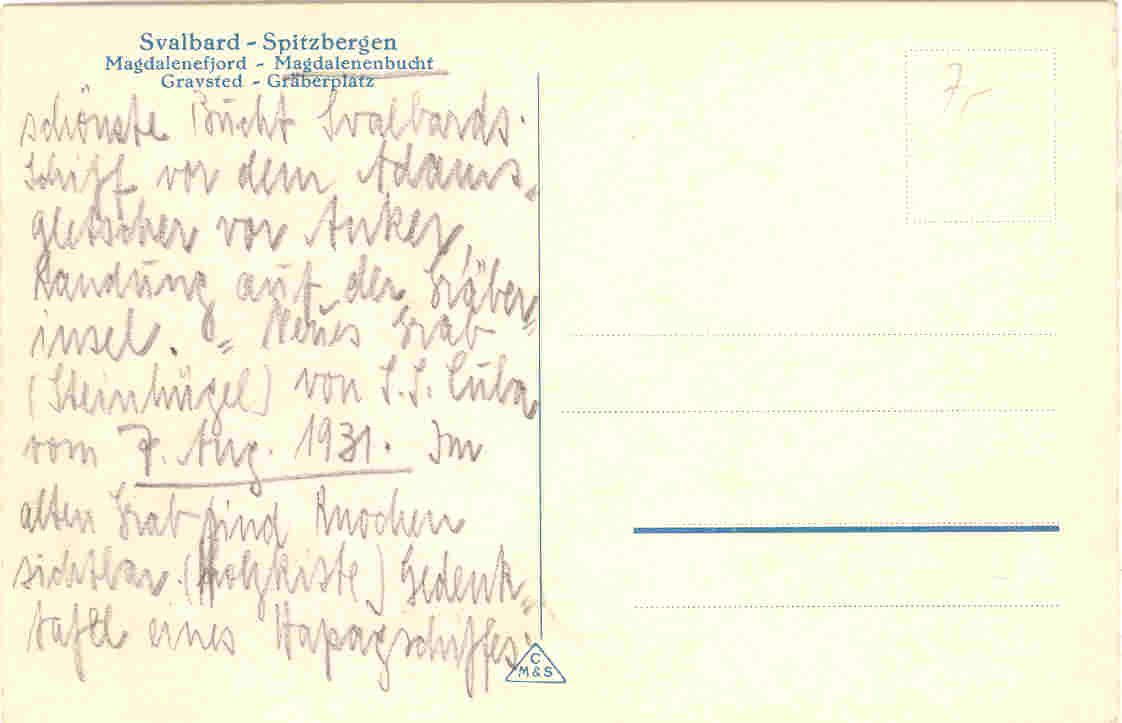 Svalbard - Spitzbergen
Magdalenefjord - Magdalenenbucht
Gravsted - Gräberplatz
7,-
schönste Bucht Svalbards.
Schiff vor dem Adams-
gletscher vor Anker,
Landung auf der Gräber-
insel. - Neues Grab
(Steinhügel) von S.S. Cuba
vom 7. Aug. 1931. Im
alten Grab sind Knochen
sichtbar. (Holzkiste) Gedenk-
tafel eines Hapagschiffes.
C
M&S